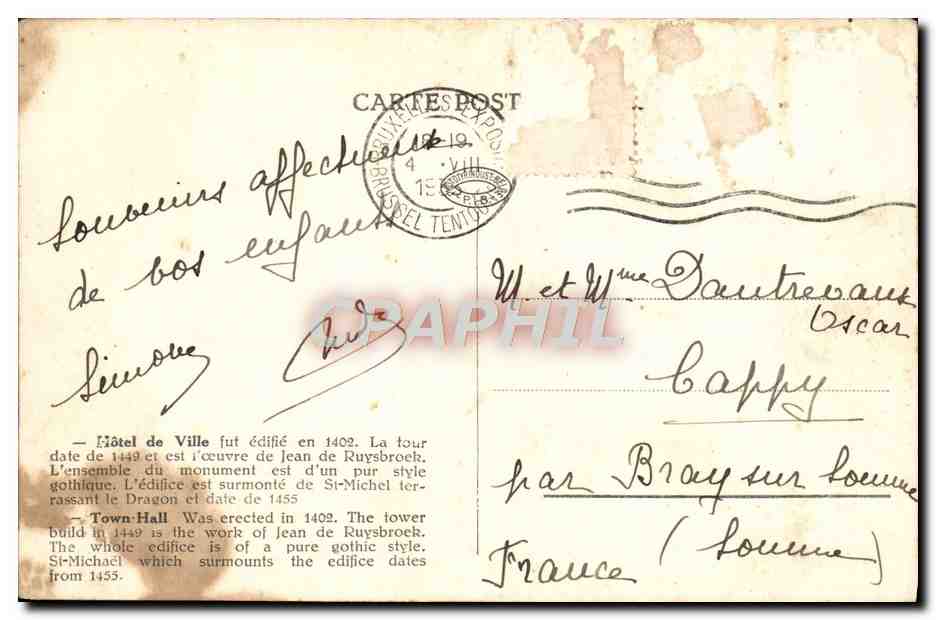 CARTE POST
BRUXELLES EXPOSI
18-19
4 VIII
19
BRUSSEL TENTOO
Souvenirs affectueux
de vos enfants
Simone
CPAPHIL
M. et Mme Dautrevaux
Oscar
Cappy
par Bray sur Somme
(Somme)
France
— Hôtel de Ville fut édifié en 1402. La tour
date de 1449 et est l'œuvre de Jean de Ruysbroek.
L'ensemble du monument est d'un pur style
gothique. L'édifice est surmonté de St-Michel ter-
rassant le Dragon et date de 1455
— Town-Hall Was erected in 1402. The tower
build in 1449 is the work of Jean de Ruysbroek.
The whole edifice is of a pure gothic style.
St-Michaël which surmounts the edifice dates
from 1455.